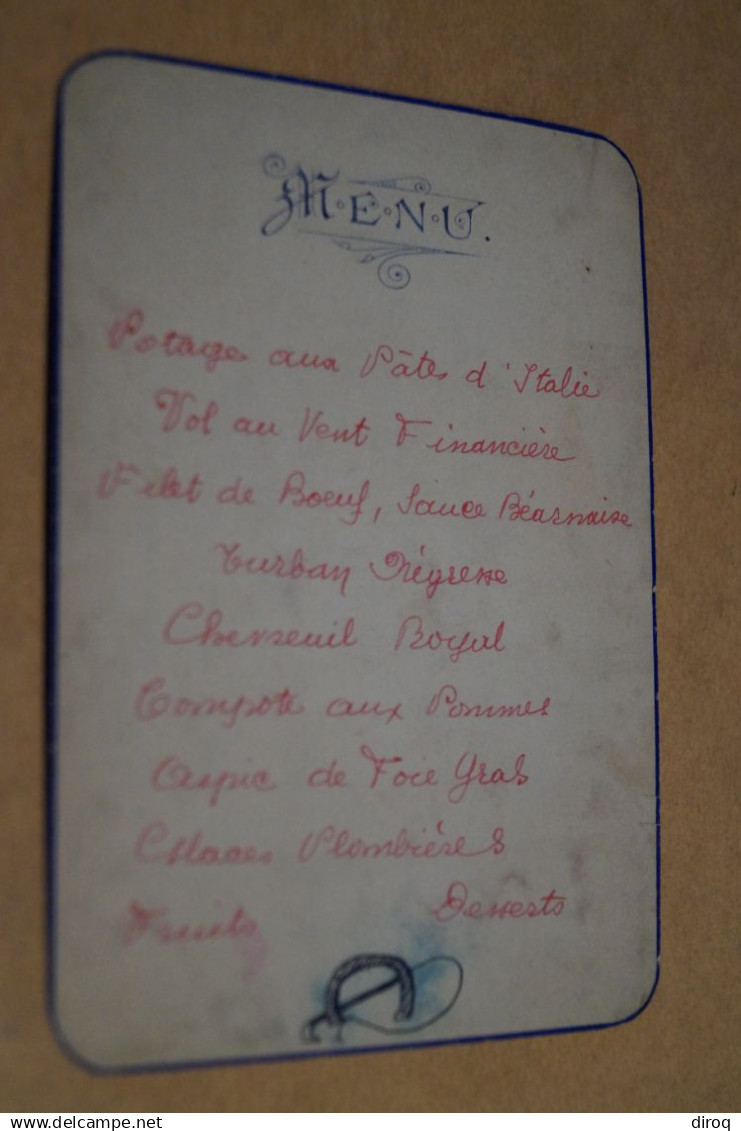 M·E·N·U.
Potage aux Pâtes d'Italie
Vol au Vent Financière
Filet de Boeuf, Sauce Béarnaise
Turban Négresse
Chevreuil Royal
Compote aux Pommes
Aspic de Foie Gras
Glaces Plombières
Fruits Desserts
delcampe.net
diroq